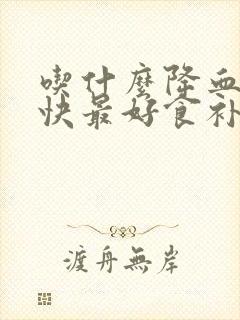 喫什麼降血
快最好食补
渡舟無岸